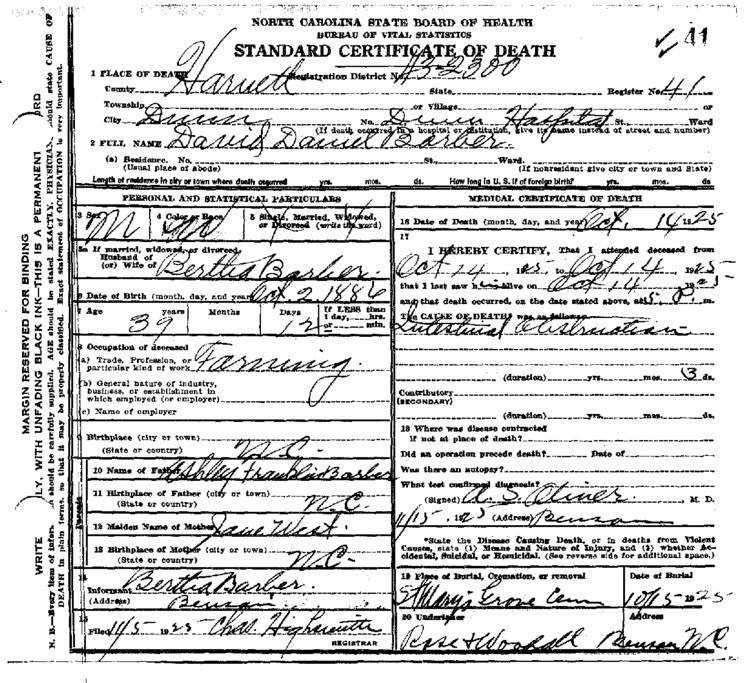 NORTH CAROLINA STATE BOARD OF HEALTH
BUREAU OF VITAL STATISTICS
STANDARD CERTIFICATE OF DEATH
41
1 PLACE OF DEATH
Registration District No. 43-2300
County Harnett State Register No. 41
Township or Village or
City Dunn No. Dunn Hospital St., Ward
(If death occurred in a hospital or institution, give its name instead of street and number)
2 FULL NAME David Daniel Barber
(a) Residence. No. St., Ward.
(Usual place of abode) (If nonresident give city or town and State)
Length of residence in city or town where death occurred yrs. mos. ds. How long in U. S. if of foreign birth? yrs. mos. ds
PERSONAL AND STATISTICAL PARTICULARS
3 Sex M
4 Color or Race W
5 Single, Married, Widowed, or Divorced (write the word)
5a If married, widowed, or divorced,
Husband of
(or) Wife of Bertha Barber
6 Date of Birth (month, day, and year) Oct 2 1886
7 Age years Months Days If LESS than
1 day, hrs.
39 12 or min.
8 Occupation of deceased
(a) Trade, Profession, or
particular kind of work Farming
(b) General nature of industry,
business, or establishment in
which employed (or employer)
(c) Name of employer
Birthplace (city or town)
(State or country) N.C.
10 Name of Father Ashley Franklin Barber
11 Birthplace of Father (city or town)
(State or country) N.C.
12 Maiden Name of Mother Jane West.
13 Birthplace of Mother (city or town)
(State or country) N.C.
Parents
14
Informant Bertha Barber.
(Address) Benson
15
Filed 11/5 1925 Chas. Highsmith
REGISTRAR
MEDICAL CERTIFICATE OF DEATH
16 Date of Death (month, day, and year) Oct. 14 1925
17
I HEREBY CERTIFY, That I attended deceased from
Oct 14, 1925 to Oct 14, 1925
that I last saw him alive on Oct 14 1925
and that death occurred, on the date stated above, at 5 P. m.
The CAUSE OF DEATH* was as follows:
Intestinal Obstruction
(duration) yrs. mos. 3 ds.
Contributory
(SECONDARY)
(duration) yrs. mos. ds.
18 Where was disease contracted
if not at place of death?
Did an operation precede death? Date of
Was there an autopsy?
What test confirmed diagnosis?
(Signed) M. D.
11/15, 1925 (Address) Benson
*State the Disease Causing Death, or in deaths from Violent
Causes, state (1) Means and Nature of Injury, and (2) whether Ac-
cidental, Suicidal, or Homicidal. (See reverse side for additional space.)
19 Place of Burial, Cremation, or removal Date of Burial
St Mary's Grove Cem 10/15 1925
20 Undertaker Address
Rose & Woodall Benson N.C.
MARGIN RESERVED FOR BINDING
WRITE LY, WITH UNFADING BLACK INK—THIS IS A PERMANENT RD
N. B.—Every item of infor should be carefully supplied. AGE should be stated EXACTLY. PHYSICIAN should state CAUSE OF
DEATH in plain terms, so that it may be properly classified. Exact statement of OCCUPATION is very important.